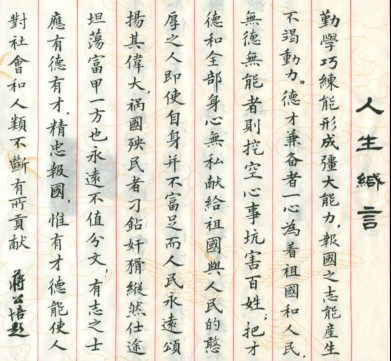 人生緘言
勤學巧練能形成彊大能力，報國之志能產生
不渴動力。德才兼备者一心為着祖國和人民，
無德無能者則挖空心事坑害百姓；把才
德和全部身心無私献給祖國與人民的憨
厚之人即使自身并不富足而人民永遠頌
揚其偉大，禍國殃民者刁鉆奸猾縱然仕途
坦蕩富甲一方也永遠不值分文，有志之士
應有德有才，精忠報國，惟有才德能使人
對社會和人類不斷有所貢献
蔣公培題